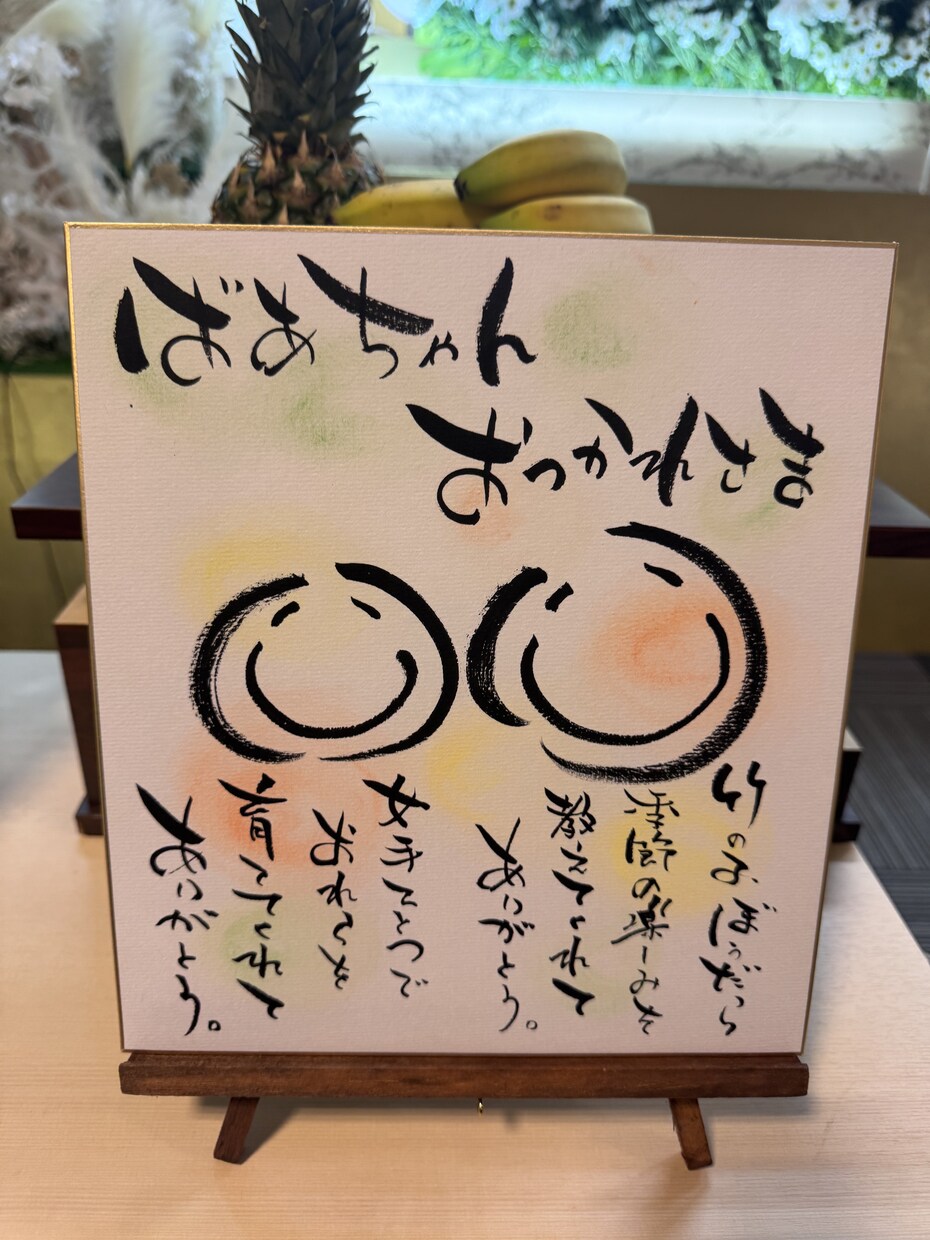 ばあちゃん
おつかれさま
竹の子、ぼうだら
季節の楽しみを
教えてくれて
ありがとう。
女手ひとつで
おれたちを
育ててくれて
ありがとう。